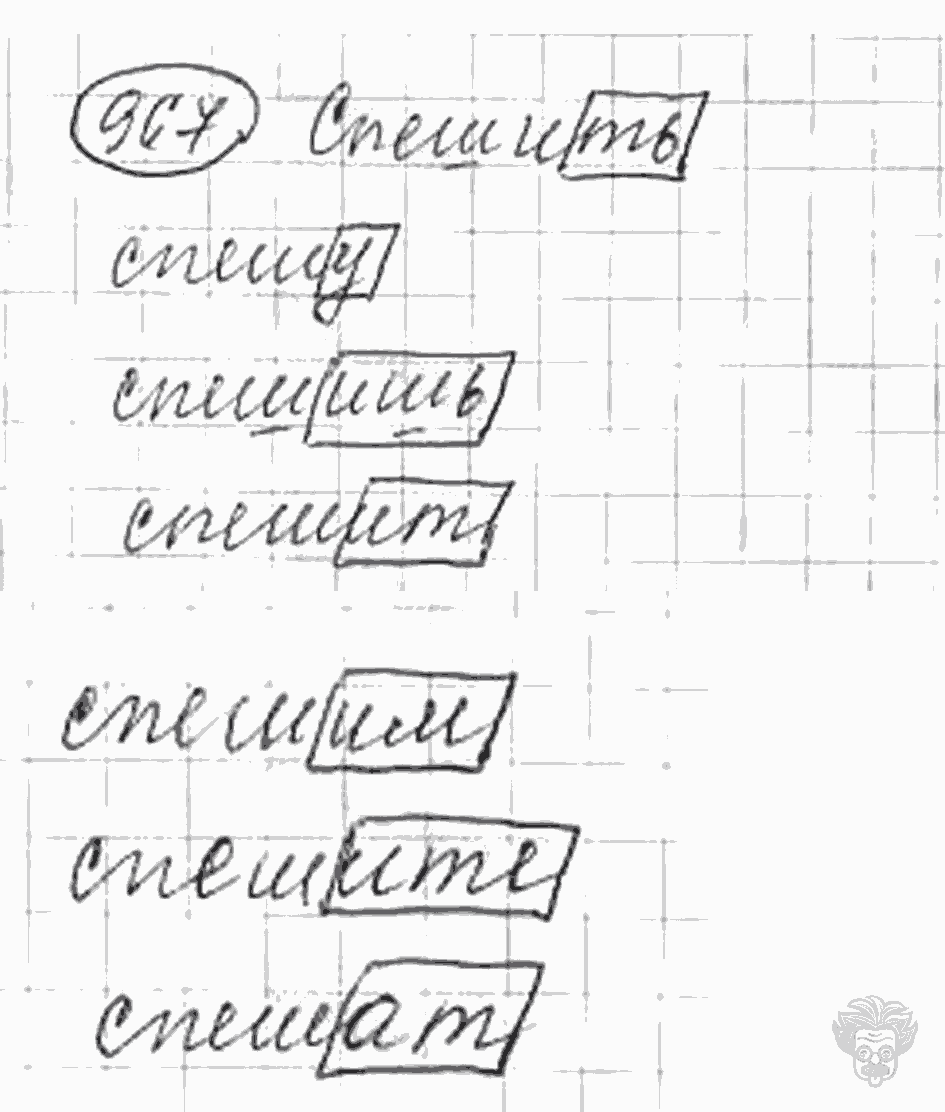 967 Спешить
спешу
спешишь
спешит
спешим
спешите
спешат